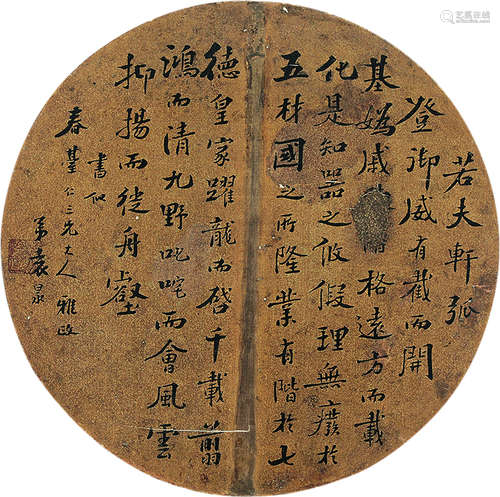 若夫軒弧
登御威有截而開
基媯戚 格遠方而載
化是知器之攸假理無廢於
五材國之所隆業有階於七
德皇家躍龍而啓千載翦
鴻而清九野叱咤而會風雲
抑揚而徒舟壑
書似
春 仁三兄大人雅政
弟袁